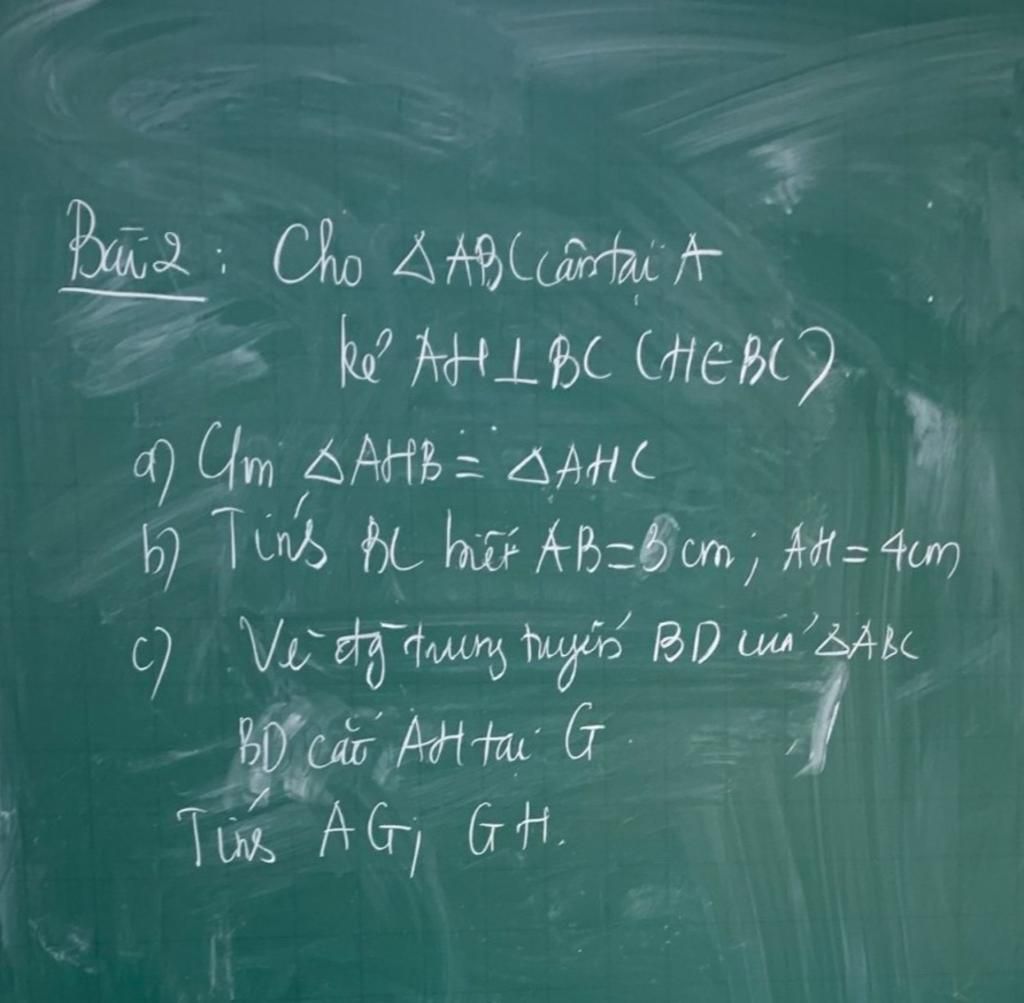 Bài 2 : Cho △ABC cân tại A
kẻ AH⊥BC (H∈BC)
a) Cm △AHB = △AHC
b) Tính BC biết AB = 5 cm ; AH = 4cm
c) Vẽ đg trung tuyến BD của △ABC
BD cắt AH tại G.
Tính AG; GH.